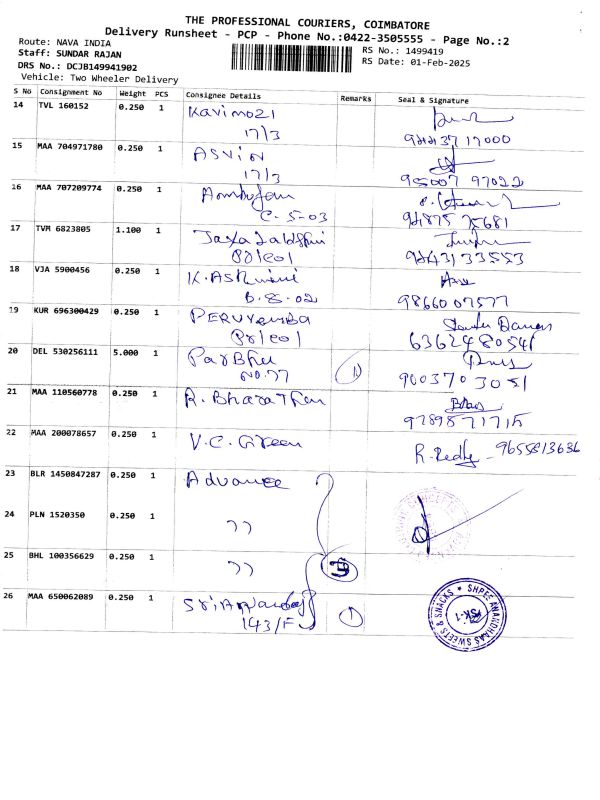 THE PROFESSIONAL COURIERS, COIMBATORE
Delivery Runsheet - PCP - Phone No.:0422-3505555 - Page No.:2
Route: NAVA INDIA
RS No.: 1499419
Staff: SUNDAR RAJAN
RS Date: 01-Feb-2025
DRS No.: DCJB149941902
Vehicle: Two Wheeler Delivery
S No Consignment No Weight PCS Consignee Details Remarks Seal & Signature
14 TVL 160152 0.250 1 Kavimozi
17/3 94437 17000
15 MAA 704971780 0.250 1 ASVIN
17/3 95007 97022
16 MAA 707209774 0.250 1
C-5-03 94875 75681
17 TVM 6823805 1.100 1
96431 33553
18 VJA 5900456 0.250 1 K. AShwini
B.8.02 9866007577
19 KUR 696300429 0.250 1
6362480541
20 DEL 530256111 5.000 1 ParBhu
NO.77 1 900370 3051
21 MAA 110560778 0.250 1 R. BharaThan
9789871715
22 MAA 200078657 0.250 1 V.C. Green R. Reddy - 9655813636
23 BLR 1450847287 0.250 1 Advance
24 PLN 1520350 0.250 1 ,,
25 BHL 100356629 0.250 1 ,, 3
26 MAA 650062089 0.250 1
143/F 1
SHREE ANANDHAAS SWEETS & SNACKS